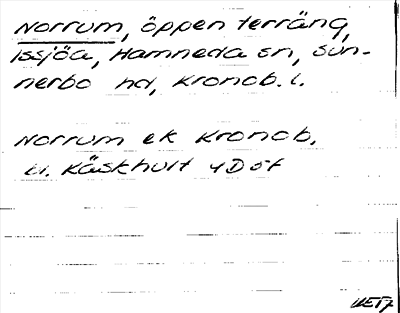 Norrum, öppen terräng,
Issjöa, Hamneda sn, Sun-
nerbo hd, Kronob. l.
Norrum ek Kronob.
bl. Käskhult 4D 5f